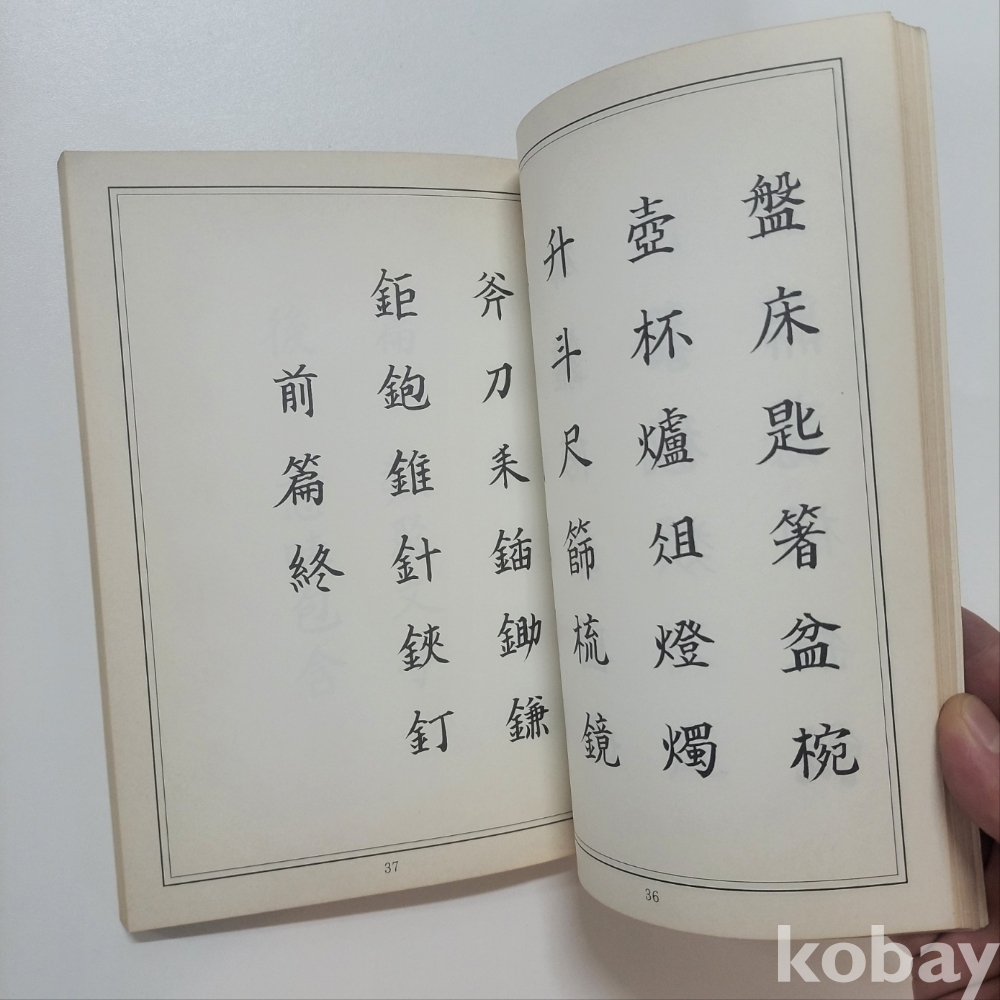 盤床匙箸盆椀
壺杯爐俎燈燭
升斗尺篩梳鏡
36
斧刀耒鍤鋤鎌
鉅鉋錐針鋏釘
前篇終
37
kobay